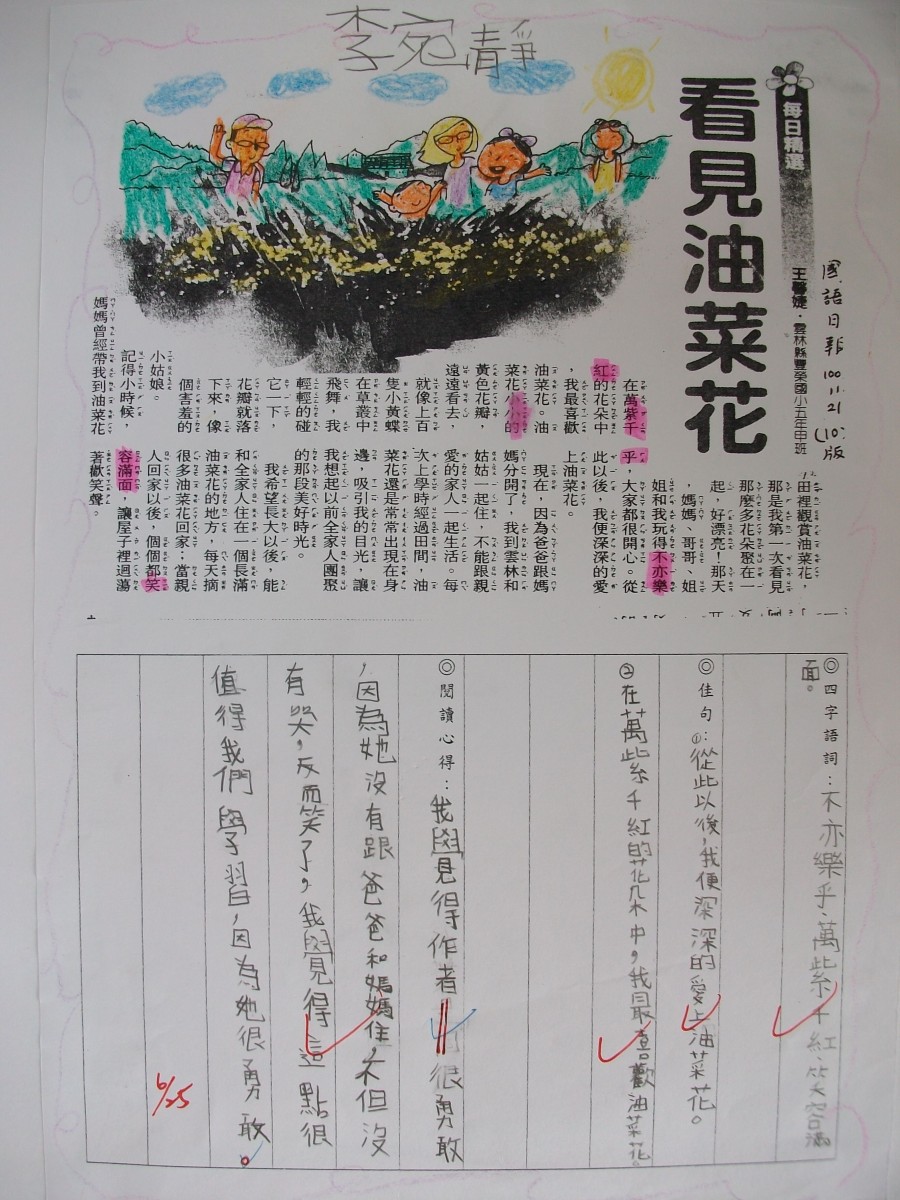 李宛靜
每日精選
看見油菜花
王馨婕・雲林縣豐榮國小五年甲班
國語日報 100.11.21 (10)版
在萬紫千
紅的花朵中
，我最喜歡
油菜花。油
菜花小小的
黃色花瓣，
遠遠看去，
就像上百
隻小黃蝶
在草叢中
飛舞，我
輕輕的碰
它一下，
花瓣就落
下來，像
個害羞的
小姑娘。
記得小時候，
媽媽曾經帶我到油菜花
田裡觀賞油菜花，
那是我第一次看見
那麼多花朵聚在一
起，好漂亮！那天
，媽媽、哥哥、姐
姐和我玩得不亦樂
乎，大家都很開心。從
此以後，我便深深的愛
上油菜花。
現在，因為爸爸跟媽
媽分開了，我到雲林和
姑姑一起住，不能跟親
愛的家人一起生活。每
次上學時經過田間，油
菜花還是常常出現在身
邊，吸引我的目光，讓
我想起以前全家人團聚
的那段美好時光。
我希望長大以後，能
和全家人住在一個長滿
油菜花的地方，每天摘
很多油菜花回家；當親
人回家以後，個個都笑
容滿面，讓屋子裡迴蕩
著歡笑聲。
◎四字語詞：不亦樂乎、萬紫千紅、笑容滿
面。
◎佳句：①從此以後，我便深深的愛上油菜花。
②在萬紫千紅的花朵中，我最喜歡油菜花。
◎閱讀心得：我覺得作者很勇敢
，因為她沒有跟爸爸和媽媽住，不但沒
有哭，反而笑了，我覺得這點很
值得我們學習，因為她很勇敢。
6/25